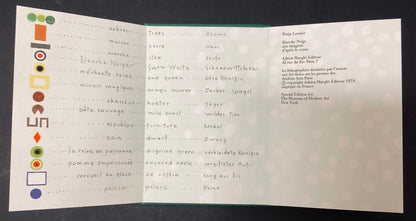 arbres trees Bäume
maison house Haus
marche step Stufe
Blanche Neige Snow White Schneewittchen
méchante reine bad queen böse Königin
miroir magique magic mirror Zauber-Spiegel
chasseur hunter Jäger
bête sauvage wild animal Wildes Tier
meubles furniture Möbel
nain dwarf Zwerg
la reine en paysanne disguised queen verkleidete Königin
pomme empoisonnée poisoned apple vergifteter Apfel
cercueil en glace ice coffin Sarg aus Eis
prince prince Prinz
Warja Lavater
Blanche Neige
une imagerie
d'après le conte
Adrien Maeght Editeur
42 rue du Bac Paris 7
les lithographies dessinées par l'artiste
ont été tirées sur les presses des
Ateliers Arte Paris
© copyright Adrien Maeght Editeur 1974
imprimé en France
Special Edition for
The Museum of Modern Art
New York